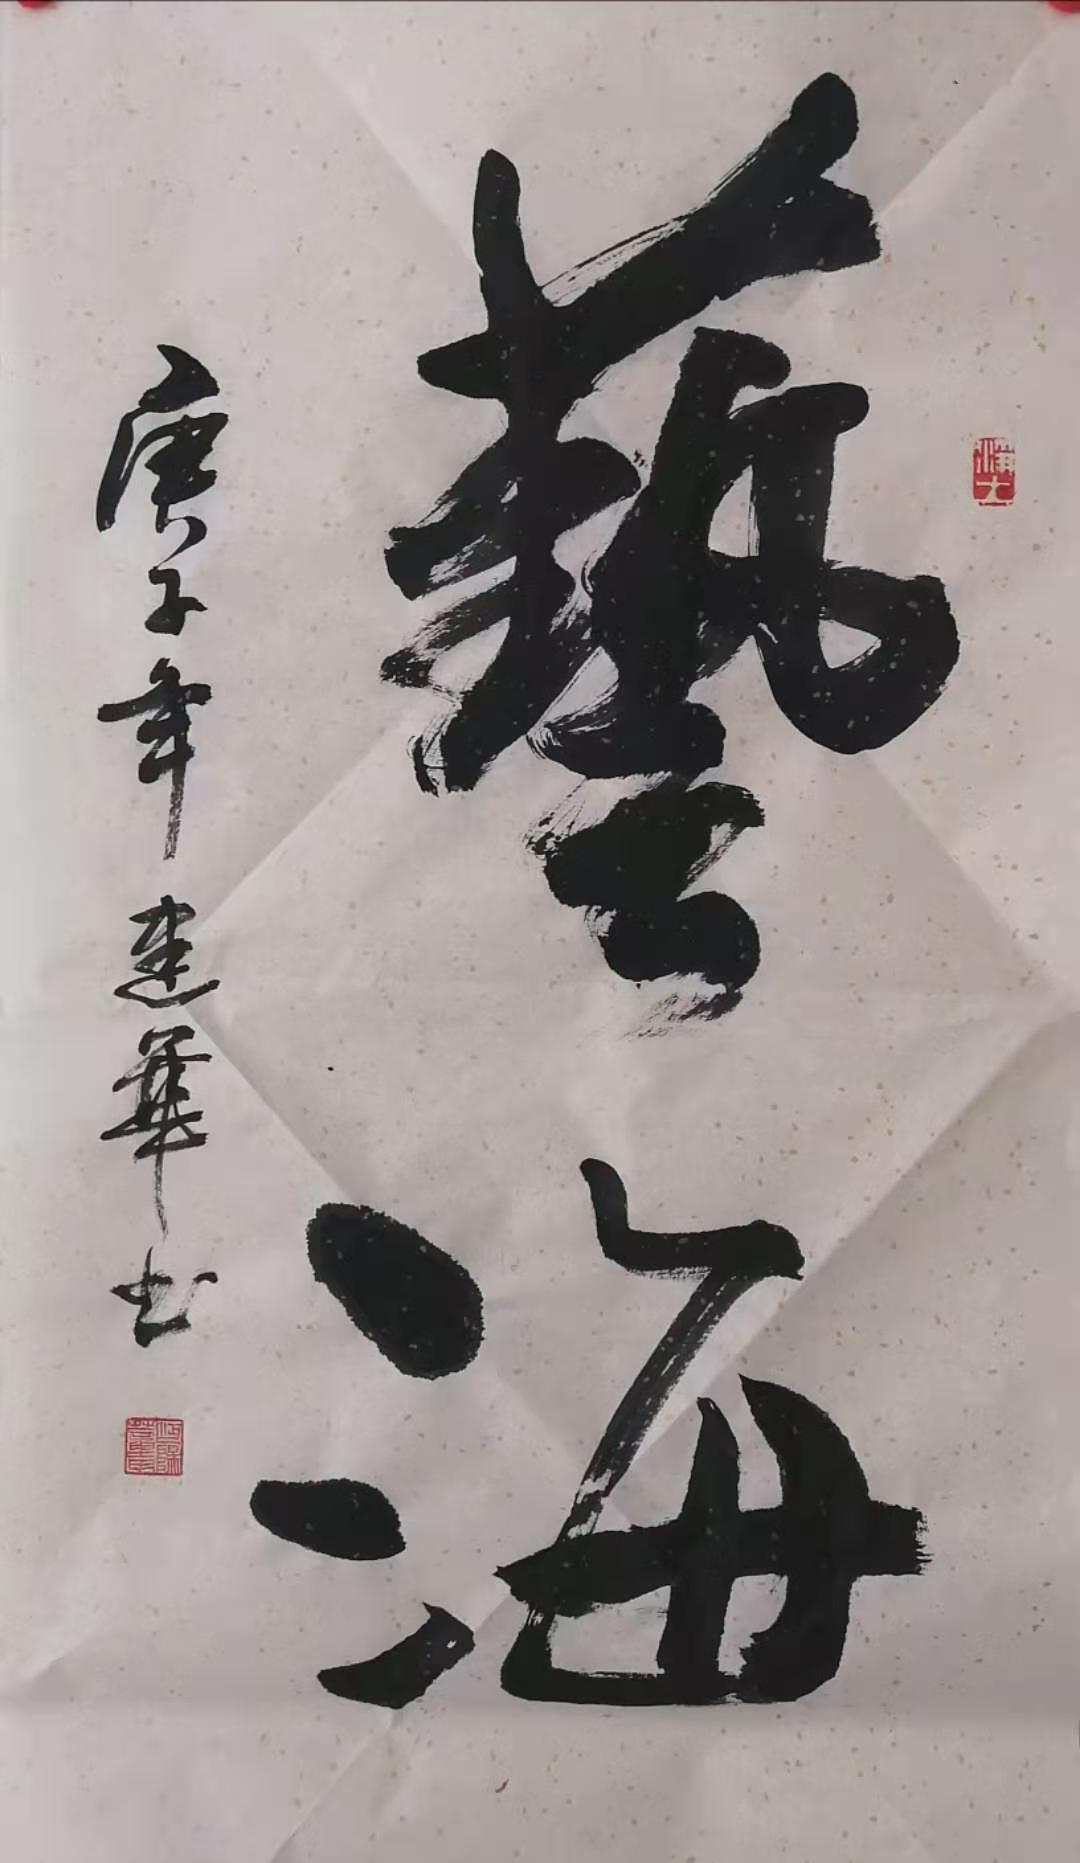 藝海
庚子年 建華书